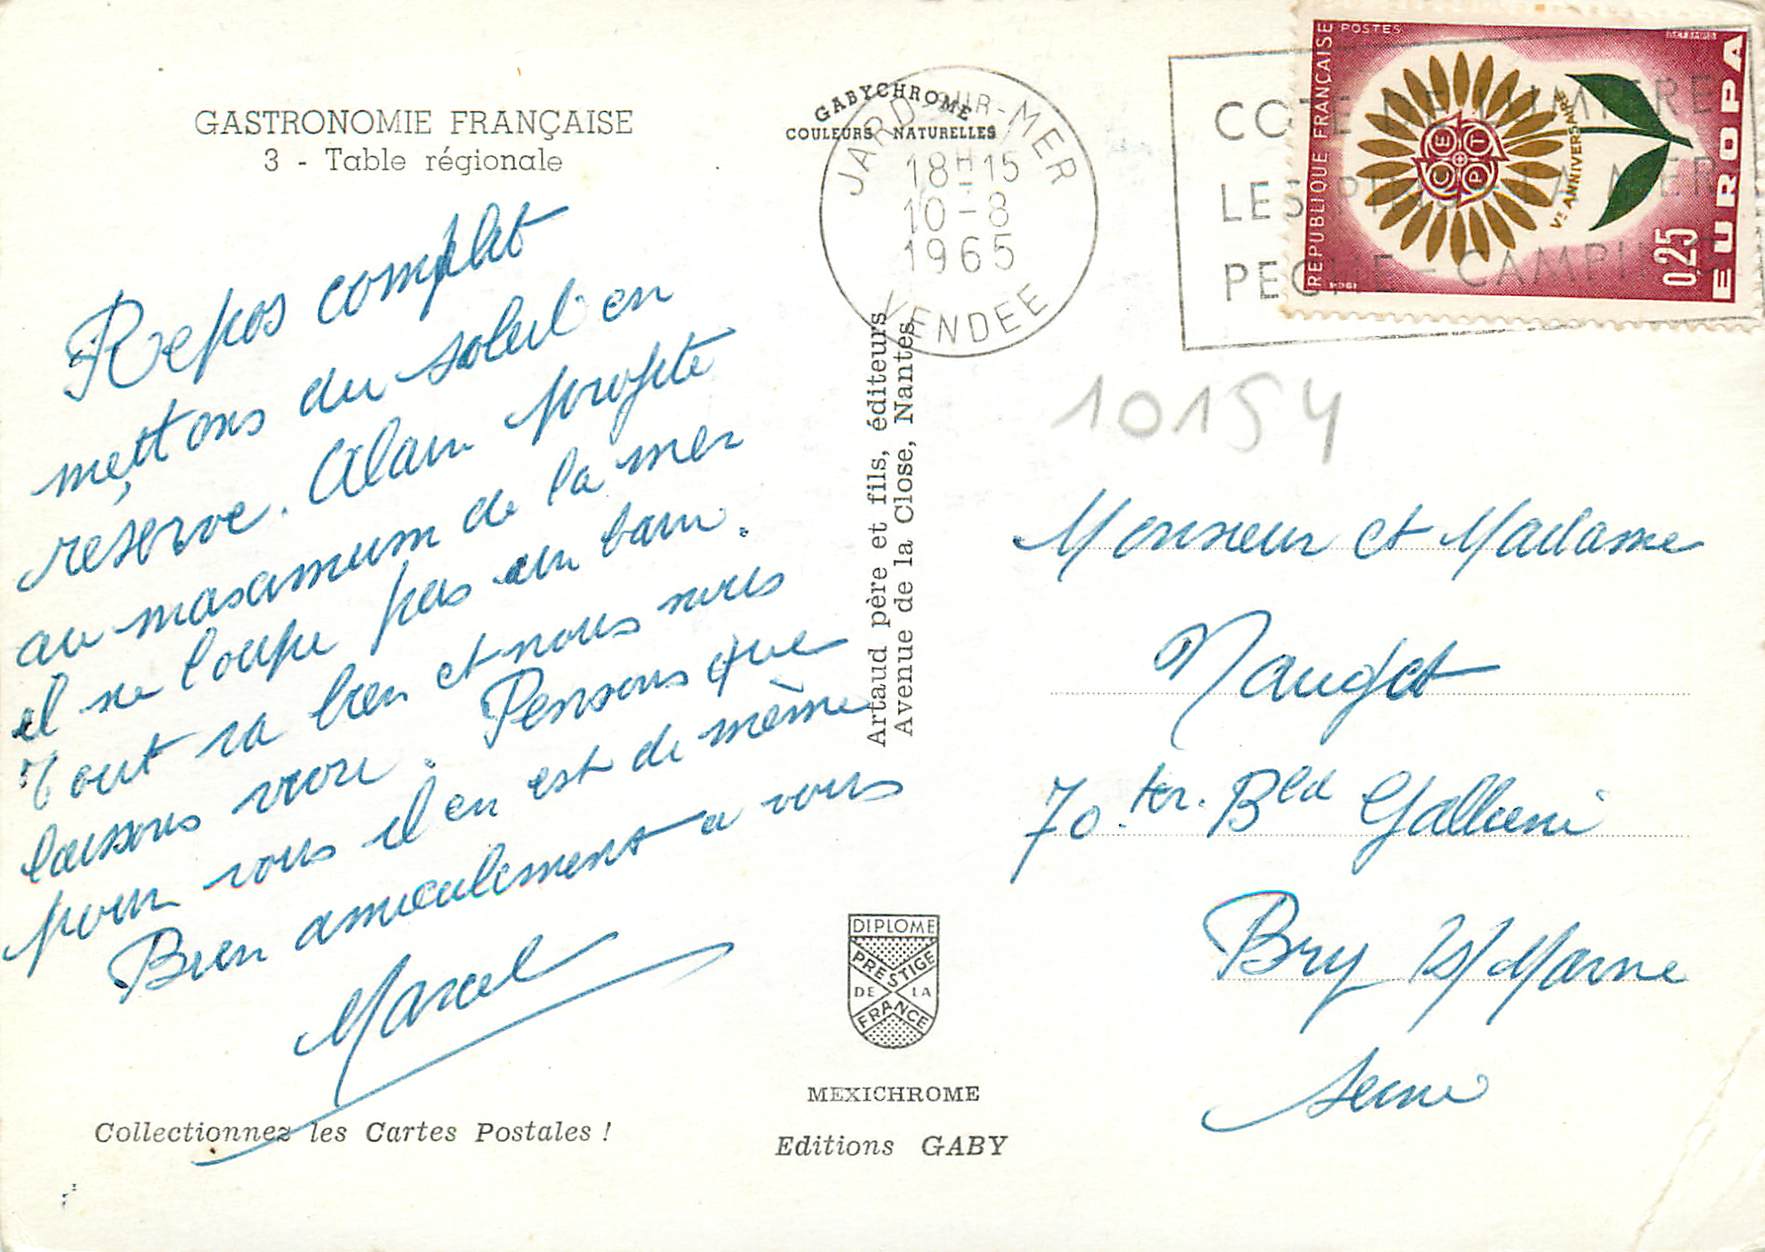 GASTRONOMIE FRANÇAISE
3 - Table régionale
Repos complet
mettons du soleil en
réserve. Alain profite
au maximum de la mer
il ne loupe pas un bain.
Tout va bien et nous nous
laissons vivre. Pensons que
pour vous il en est de même
Bien amicalement a vous
Marcel
Collectionnez les Cartes Postales !
GABYCHROME
COULEURS NATURELLES
JARD-SUR-MER
18H15
10-8
1965
VENDEE
Artaud père et fils, éditeurs
Avenue de la Close, Nantes
DIPLOME
PRESTIGE
DE LA
FRANCE
MEXICHROME
Editions GABY
COTE DE LUMIERE
LES PINS - LA MER
PECHE - CAMPING
REPUBLIQUE FRANÇAISE
POSTES
CEPT
Ve ANNIVERSAIRE
0,25
EUROPA
1964
10154
Monsieur et Madame
Naugat
70 ter. Bld Gallieni
Bry s/ Marne
Seine